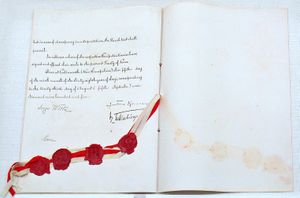 but in case of discrepancy in interpretation, the French text shall
prevail.
In witness whereof, the respective Plenipotentiaries have
signed and affixed their seals to the present Treaty of Peace.
Done at Portsmouth (New Hampshire) this fifth day
of the ninth month of the thirty eighth year of Meiji, corresponding
to the twenty third day of August (fifth September) one
thousand nine hundred and five.
Serge Witte
Rosen